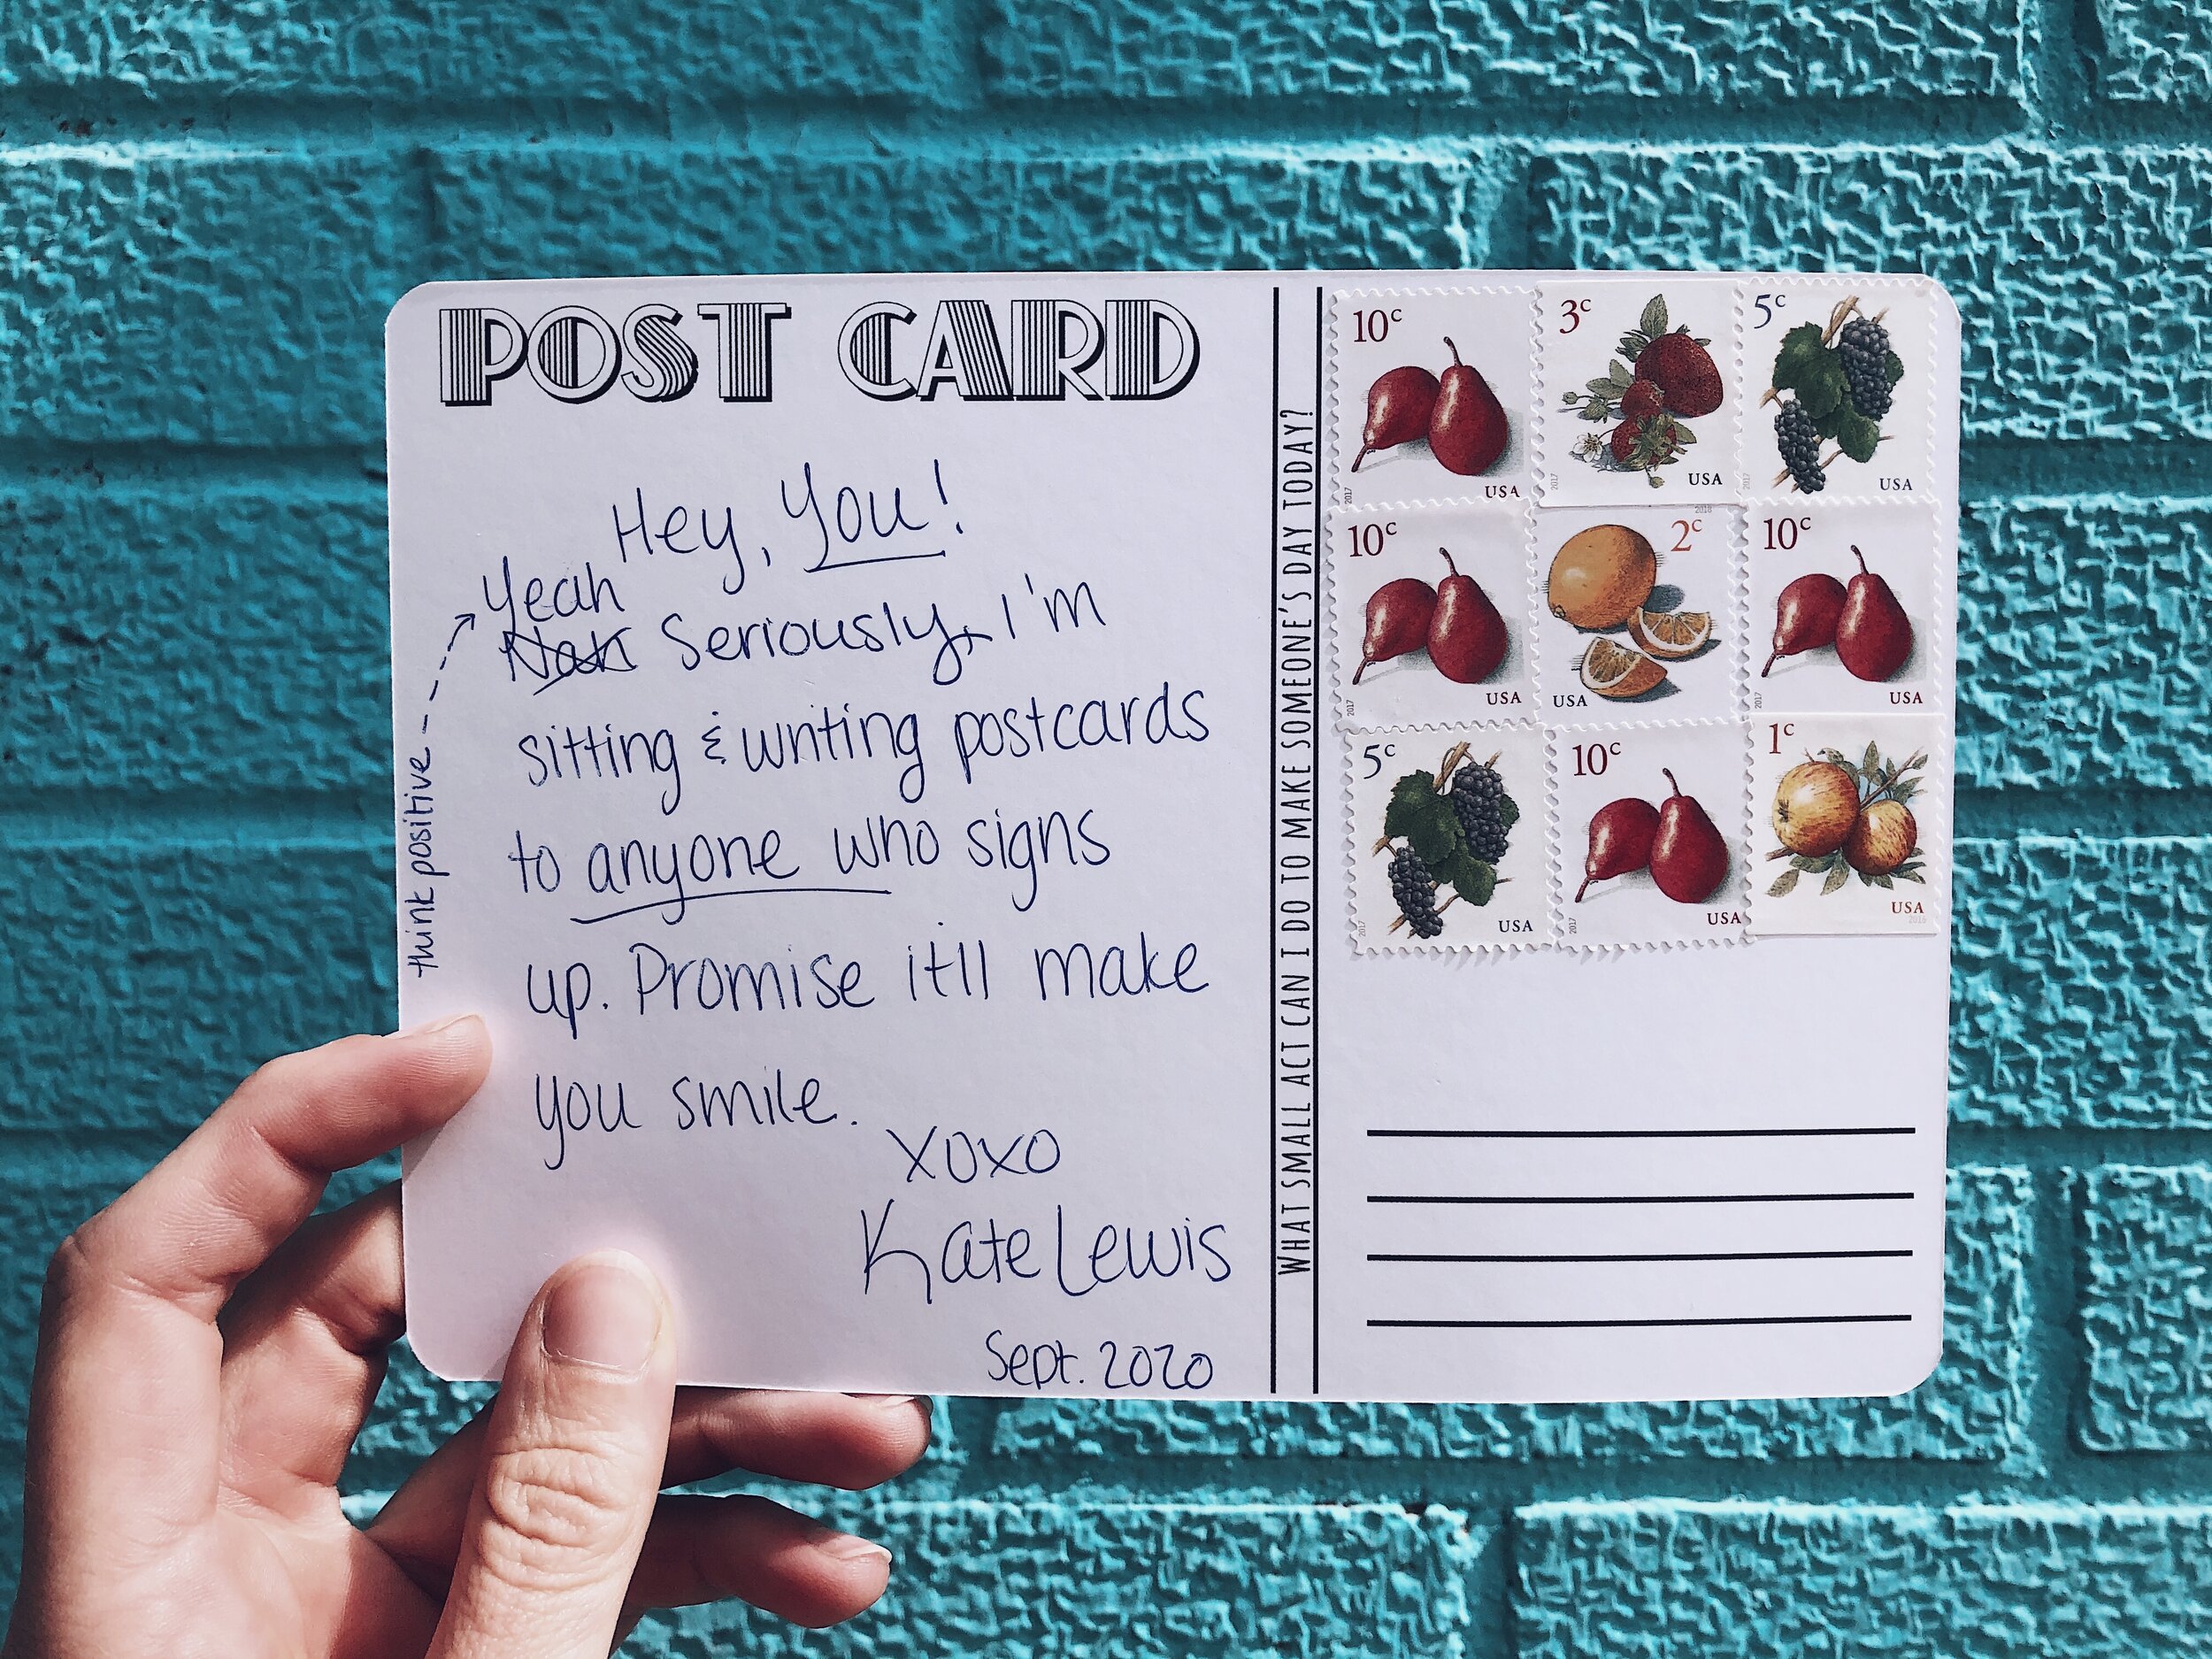 POST CARD
Hey, You!
Yeah
Nah Seriously, I'm
sitting & writing postcards
to anyone who signs
up. Promise it'll make
you smile.
XOXO
Kate Lewis
Sept. 2020
think positive
WHAT SMALL ACT CAN I DO TO MAKE SOMEONE'S DAY TODAY?
10c
USA
2017
3c
USA
2017
5c
USA
2017
10c
USA
2017
2018
2c
USA
10c
USA
2017
5c
USA
2017
10c
USA
2017
1c
USA